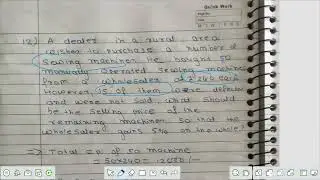 Quick Work
12) A dealer in a rural area
wishes to purchase a number of
sewing machines. He bought 50
manually operated sewing machines
from a wholesaler at ₹240 each
However, 15 of them were defective
and were not sold. what should
be the selling price of the
remaining machine, so that the
wholesaler gains 5% on the whole?
=> Total no of 50 machine
= 50x240 = 12000/-